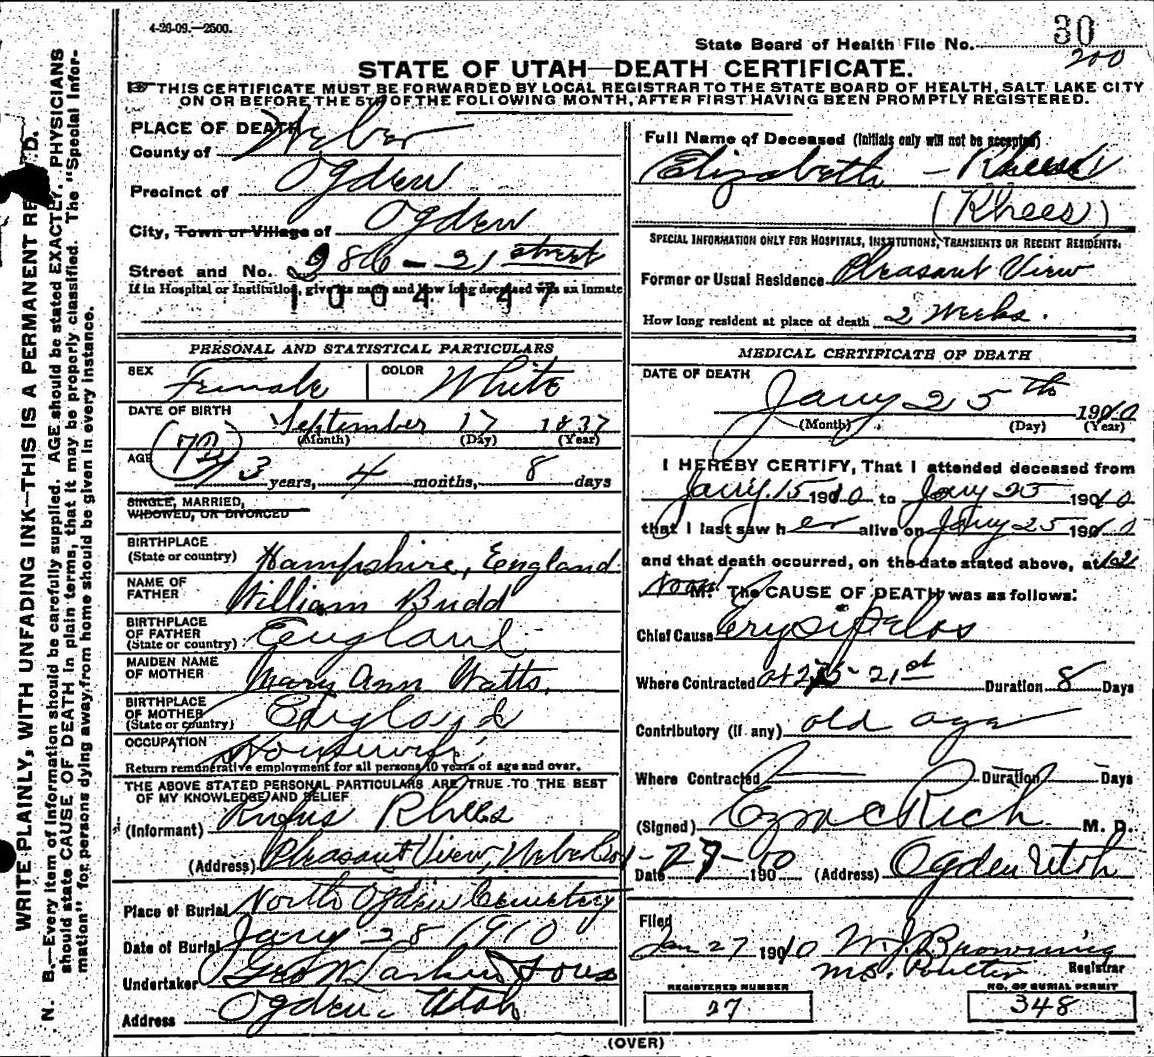 4-26-09.—2500.
30
State Board of Health File No.
200
STATE OF UTAH—DEATH CERTIFICATE.
THIS CERTIFICATE MUST BE FORWARDED BY LOCAL REGISTRAR TO THE STATE BOARD OF HEALTH, SALT LAKE CITY
ON OR BEFORE THE 5TH OF THE FOLLOWING MONTH, AFTER FIRST HAVING BEEN PROMPTLY REGISTERED.
WRITE PLAINLY, WITH UNFADING INK—THIS IS A PERMANENT RE D.
N. B.—Every item of information should be carefully supplied. AGE should be stated EXACTLY. PHYSICIANS
should state CAUSE OF DEATH in plain terms, that it may be properly classified. The "Special Infor-
mation" for persons dying away from home should be given in every instance.
PLACE OF DEATH
County of Weber
Precinct of Ogden
City, Town or Village of Ogden
Street and No. 286 - 21 street
If in Hospital or Institution, give its name and how long deceased was an inmate
1004147
PERSONAL AND STATISTICAL PARTICULARS
SEX Female COLOR White
DATE OF BIRTH September 17 1837
(Month) (Day) (Year)
AGE (72) 73 years, 4 months, 8 days
SINGLE, MARRIED,
WIDOWED, OR DIVORCED
BIRTHPLACE
(State or country) Hampshire, England.
NAME OF
FATHER William Budd
BIRTHPLACE
OF FATHER
(State or country) England
MAIDEN NAME
OF MOTHER Mary Ann Watts.
BIRTHPLACE
OF MOTHER
(State or country) England
OCCUPATION Housewife
Return remunerative employment for all persons 10 years of age and over.
THE ABOVE STATED PERSONAL PARTICULARS ARE TRUE TO THE BEST
OF MY KNOWLEDGE AND BELIEF
(Informant) Rufus Rhees
(Address) Pleasant View, Weber Co
Place of Burial North Ogden Cemetery
Date of Burial Jany 28 1910
Undertaker Geo W Larkin & Sons
Address Ogden, Utah
Full Name of Deceased (Initials only will not be accepted)
Elizabeth - Rhees
(Rhees)
SPECIAL INFORMATION ONLY FOR HOSPITALS, INSTITUTIONS, TRANSIENTS OR RECENT RESIDENTS.
Former or Usual Residence Pleasant View
How long resident at place of death 2 Weeks.
MEDICAL CERTIFICATE OF DEATH
DATE OF DEATH
Jany 25th 1910
(Month) (Day) (Year)
I HEREBY CERTIFY, That I attended deceased from
Jany. 15 1910 to Jany 25 1910
that I last saw her alive on Jany 25 1910
and that death occurred, on the date stated above, at 12
Noon M. The CAUSE OF DEATH was as follows:
Chief Cause Erysipelas
Where Contracted at 275-21st Duration 8 Days
Contributory (if any) old age
Where Contracted Duration Days
(Signed) Ezra C Rich M. D.
Date 1-27-10 190 (Address) Ogden Utah
Filed
Jan 27 1910 W. J. Browning
Registrar
REGISTERED NUMBER
27
NO. OF BURIAL PERMIT
348
(OVER)